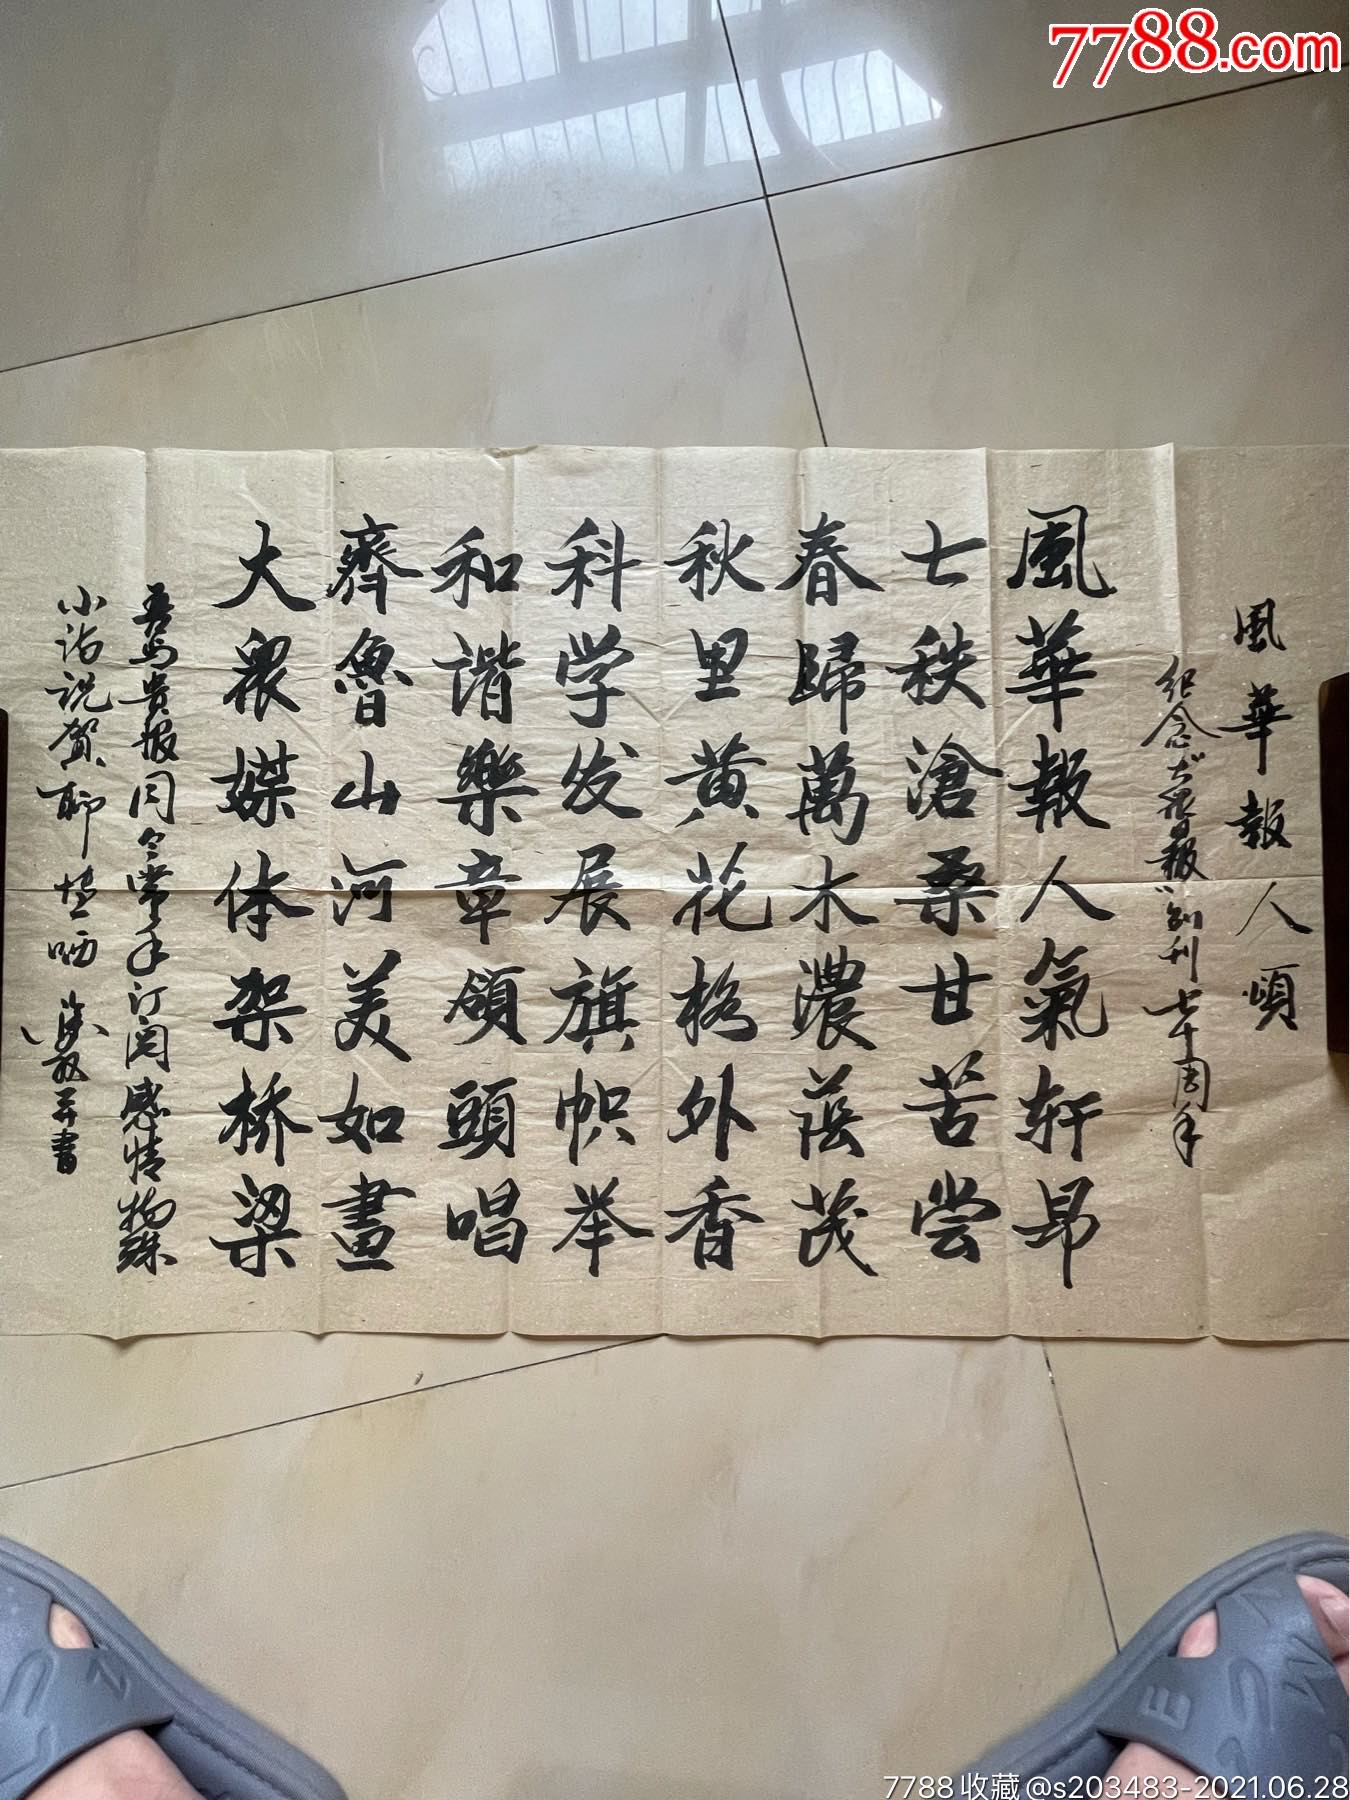 7788.com
風華報人頌
纪念"大眾日報"創刊七十周年
風華報人氣轩昂
七秩滄桑甘苦尝
春歸萬木濃蔭茂
秋里黄花格外香
科学发展旗帜举
和谐樂章領頭唱
齊魯山河美如畫
大眾媒体架桥梁
吾与贵报同令常年订阅感情特殊
小诗祝贺聊博哂
并書
7788收藏@s203483-2021.06.28